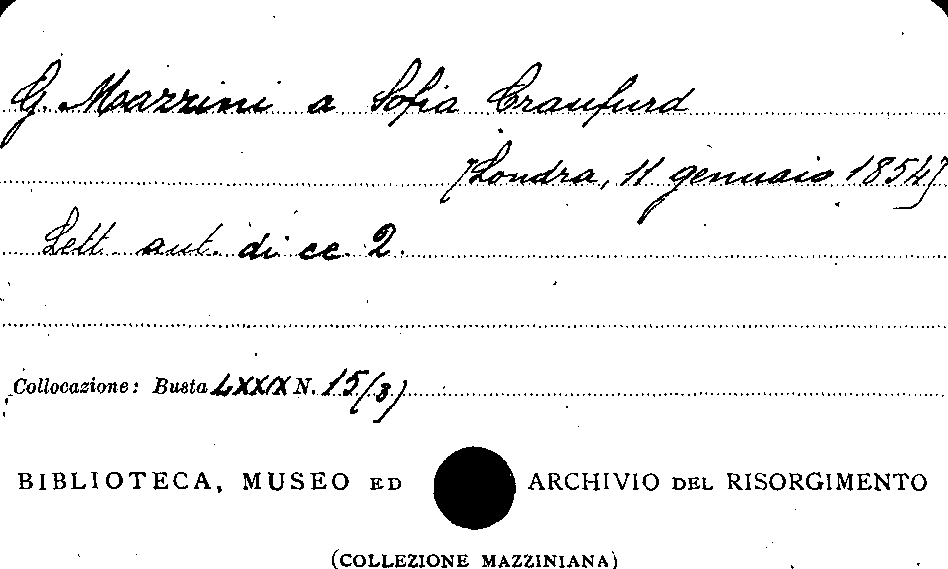 G. Mazzini a Sofia Craufurd
[Londra, 11 gennaio 1854]
Lett. aut. di cc. 2.
Collocazione: Busta LXXIX N. 15/(3)
BIBLIOTECA, MUSEO ED ARCHIVIO DEL RISORGIMENTO
(COLLEZIONE MAZZINIANA)